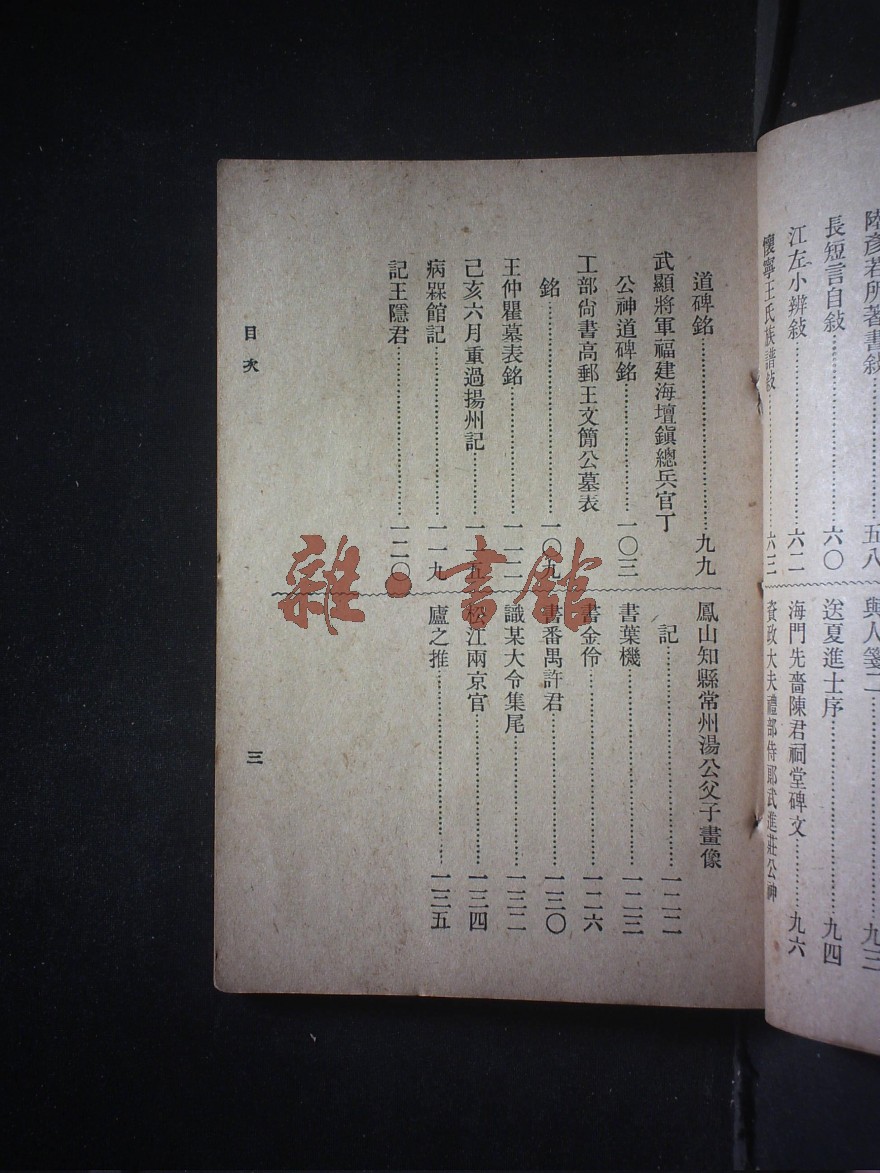 陸彥若所著書敍……五八
長短言自敍……六〇
江左小辨敍……六二
懷寧王氏族譜敍……六三
與人箋二……九三
送夏進士序……九四
海門先嗇陳君祠堂碑文……九六
資政大夫禮部侍郎武進莊公神
道碑銘……九九
武顯將軍福建海壇鎮總兵官丁
公神道碑銘……一〇三
工部尙書高郵王文簡公墓表
銘……一〇九
王仲瞿墓表銘……一一二
己亥六月重過揚州記……一一五
病槑館記……一一九
記王隱君……一二〇
鳳山知縣常州湯公父子畫像
記……一二二
書葉機……一二三
書金伶……一二六
書番禺許君……一三〇
識某大令集尾……一三二
松江兩京官……一三四
廬之推……一三五
目次
三
雜·書館